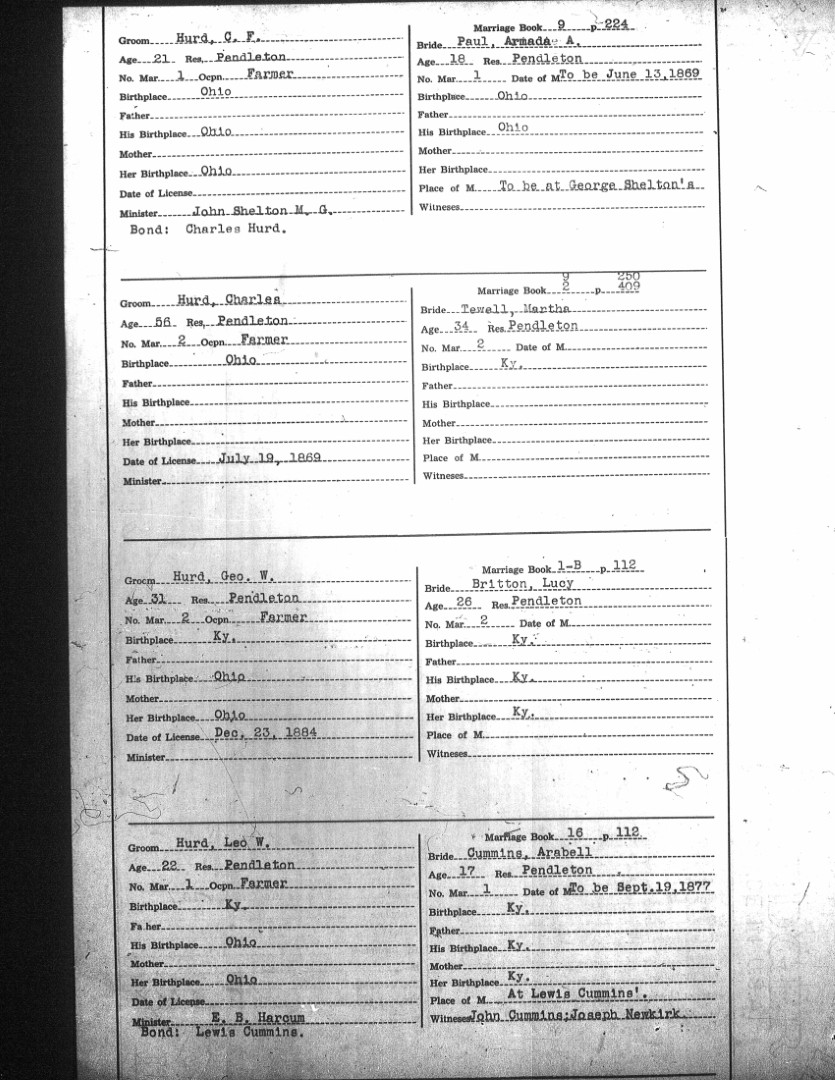 Marriage Book 9 p. 224
Groom Hurd, C. F. Bride Paul, Armada A.
Age 21 Res. Pendleton Age 18 Res. Pendleton
No. Mar. 1 Ocpn. Farmer No. Mar. 1 Date of M. To be June 13, 1869
Birthplace Ohio Birthplace Ohio
Father Father
His Birthplace Ohio His Birthplace Ohio
Mother Mother
Her Birthplace Ohio Her Birthplace
Date of License Place of M. To be at George Shelton's
Minister John Shelton M. G. Witneses
Bond: Charles Hurd.
9 250
Marriage Book 2 p. 409
Groom Hurd, Charles Bride Tewell, Martha
Age 56 Res. Pendleton Age 34 Res. Pendleton
No. Mar. 2 Ocpn. Farmer No. Mar. 2 Date of M.
Birthplace Ohio Birthplace Ky.
Father Father
His Birthplace His Birthplace
Mother Mother
Her Birthplace Her Birthplace
Date of License July 19, 1869 Place of M.
Minister Witneses
Marriage Book 1-B p. 112
Groom Hurd, Geo. W. Bride Britton, Lucy
Age 31 Res. Pendleton Age 26 Res. Pendleton
No. Mar. 2 Ocpn. Farmer No. Mar. 2 Date of M.
Birthplace Ky. Birthplace Ky.
Father Father
His Birthplace Ohio His Birthplace Ky.
Mother Mother
Her Birthplace Ohio Her Birthplace Ky.
Date of License Dec. 23, 1884 Place of M.
Minister Witneses
Marriage Book 16 p. 112
Groom Hurd, Leo W. Bride Cummins, Arabell
Age 22 Res. Pendleton Age 17 Res. Pendleton
No. Mar. 1 Ocpn. Farmer No. Mar. 1 Date of M. To be Sept. 19, 1877
Birthplace Ky. Birthplace Ky.
Father Father
His Birthplace Ohio His Birthplace Ky.
Mother Mother
Her Birthplace Ohio Her Birthplace Ky.
Date of License Place of M. At Lewis Cummins'.
Minister E. B. Harcum Witneses John Cummins; Joseph Newkirk
Bond: Lewis Cummins.